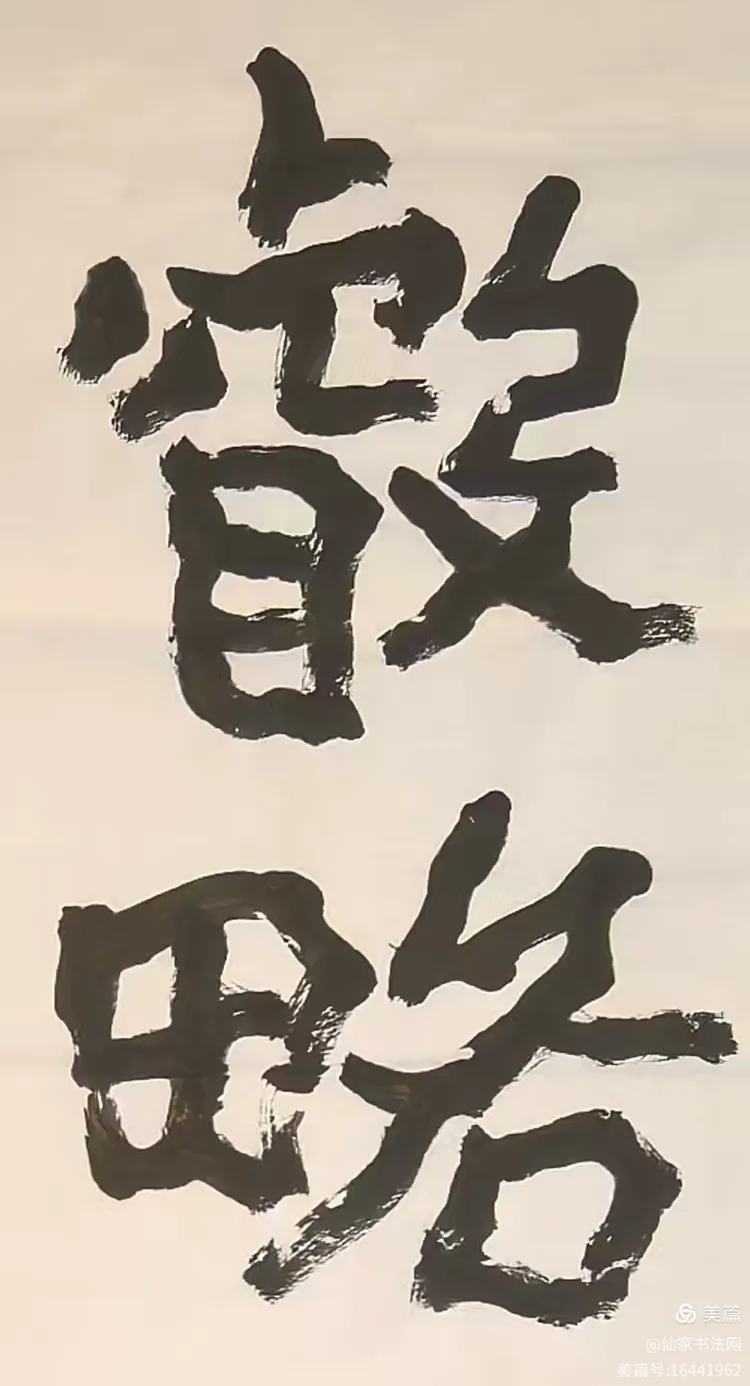 叡
略
美篇
@仙家书法网
美篇号:16441962